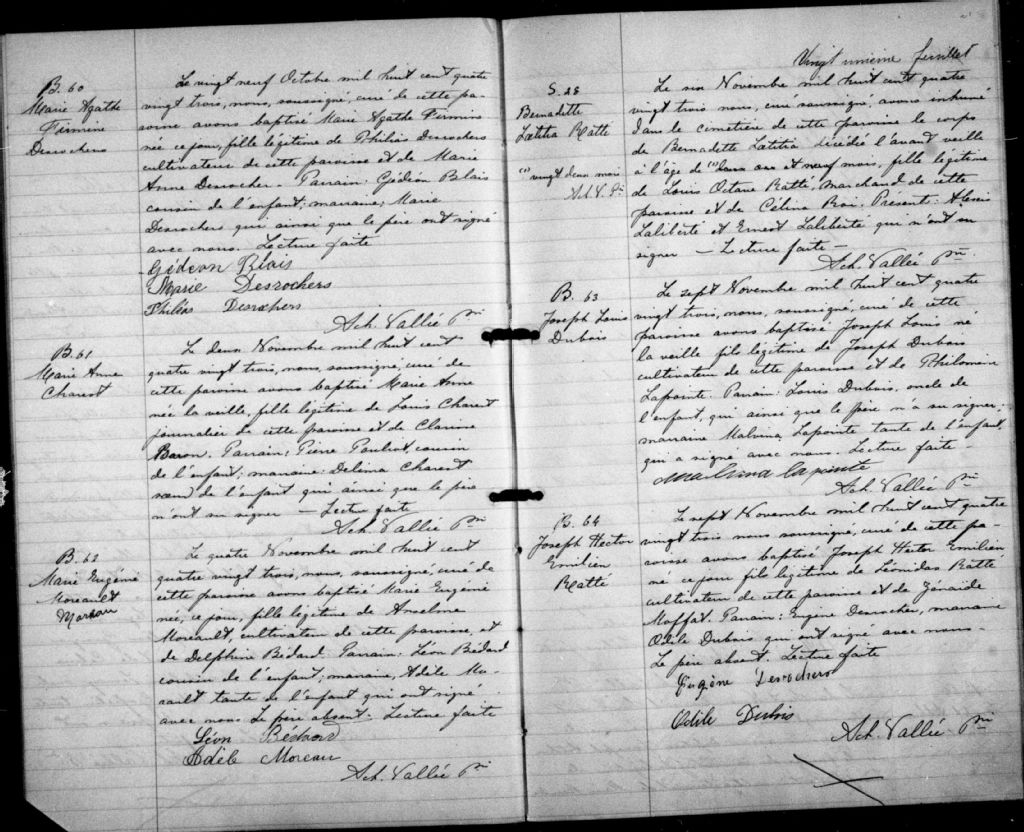 B. 60
Marie Agathe
Firmine
Desrochers
Le vingt neuf Octobre mil huit cent quatre
vingt trois, nous, soussigné, curé de cette pa-
roisse avons baptisé Marie Agathe Firmine
née ce jour, fille légitime de Philias Desrochers
cultivateur de cette paroisse et de Marie
Anne Desrocher. Parrain: Gédéon Blais
cousin de l'enfant; marraine: Marie
Desrochers qui ainsi que le père ont signé
avec nous. Lecture faite
Gédéon Blais
Marie Desrochers
Philéas Desrochers
Ach. Vallée Ptre
B. 61
Marie Anne
Charest
Le deux Novembre mil huit cent
quatre vingt trois, nous, soussigné, curé de
cette paroisse avons baptisé Marie Anne
née la veille, fille légitime de Louis Charest
journalier de cette paroisse et de Clarine
Baron. Parrain; Pierre Pauliot, cousin
de l'enfant; marraine: Délina Charest
sœur de l'enfant qui ainsi que le père
n'ont su signer — Lecture faite
Ach. Vallée Ptre
B. 62
Marie Eugénie
Moreault
Moreau
Le quatre Novembre mil huit cent
quatre vingt trois, nous, soussigné, curé de
cette paroisse avons baptisé Marie Eugénie
née, ce jour, fille légitime de Anselme
Moreault, cultivateur de cette paroisse, et
de Delphine Bédard. Parrain: Léon Bédard
cousin de l'enfant; marraine, Adèle Mo-
rault tante de l'enfant qui ont signé
avec nous. Le père absent. Lecture faite
Léon Bédard
Adèle Moreau
Ach. Vallée Ptre
Vingt unieme feuillet
S. 28
Bernadette
Lætitia Ratté
(1) vingt deux mois
A.V. Ptre
Le six Novembre mil huit cent quatre
vingt trois nous, curé soussigné, avons inhumé
dans le cimetière de cette paroisse le corps
de Bernadette Lætitia décédée l'avant veille
à l'âge de (1) deux ans et neuf mois, fille légitime
de Louis Octave Ratté, marchand de cette
paroisse et de Célina Roi. Présent: Alexis
Laliberté et Ernest Laliberté qui n'ont su
signer — Lecture faite —
Ach. Vallée Ptre
B. 63
Joseph Louis
Dubois
Le sept Novembre mil huit cent quatre
vingt trois, nous, soussigné, curé de cette
paroisse avons baptisé Joseph Louis né
la veille fils légitime de Joseph Dubois
cultivateur de cette paroisse et de Philomine
Lapointe. Parrain: Louis Dubois, oncle de
l'enfant, qui ainsi que le père n'a su signer;
marraine Malvina Lapointe tante de l'enfant,
qui a signé avec nous. Lecture faite
Malvina Lapointe
Ach. Vallée Ptre
B. 64
Joseph Hector
Emilien
Ratté
Le sept Novembre mil huit cent quatre
vingt trois nous soussigné, curé de cette pa-
roisse avons baptisé Joseph Hector Emilien
né ce jour fils légitime de Léonidas Ratté
cultivateur de cette paroisse et de Zénaïde
Moffat. Parrain: Eugène Desrocher, marraine
Odile Dubois qui ont signé avec nous.
Le père absent. Lecture faite
Eugène Desrochers
Odile Dubois
Ach. Vallée Ptre